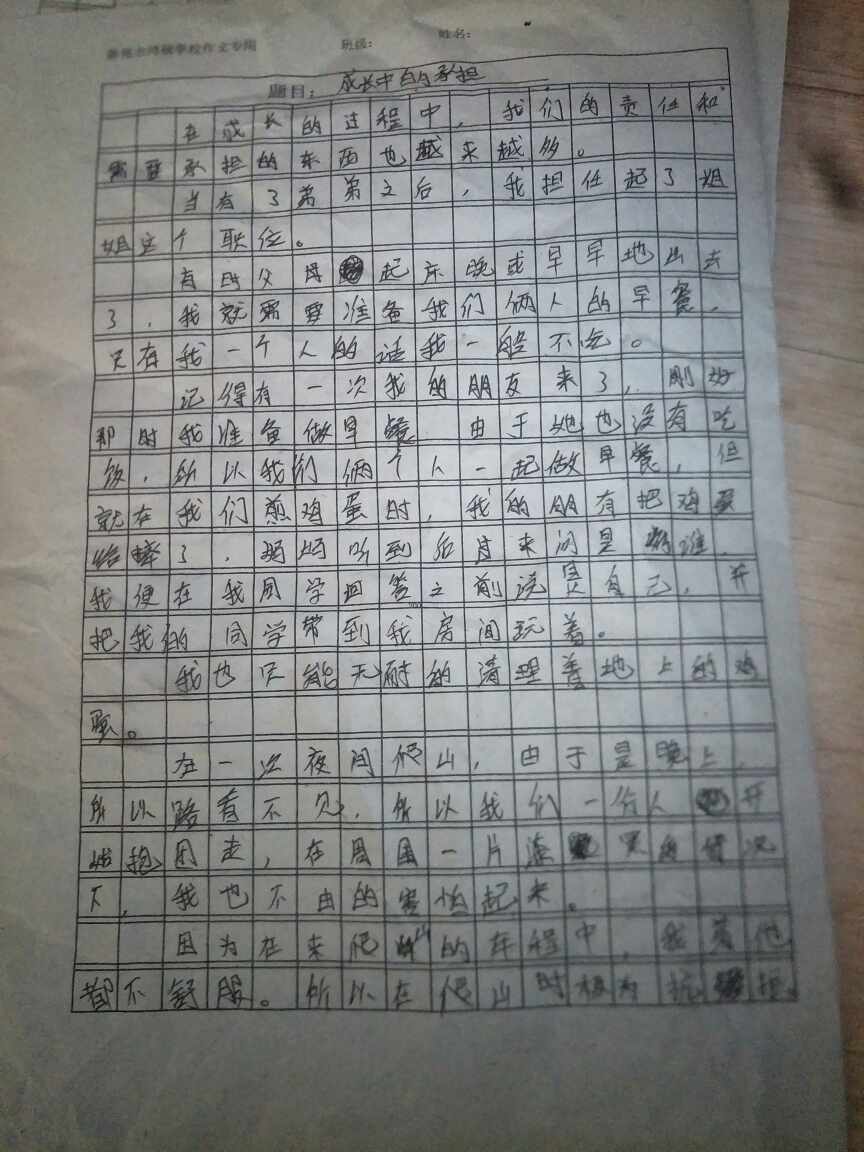 学校作文专用 班级： 姓名：
题目：成长中的承担
在成长的过程中，我们的责任和
需要承担的东西也越来越多。
当有了弟弟之后，我担任起了姐
姐这个职位。
有时父母起床晚或早早地出去
了，我就需要准备我们俩人的早餐，
只有我一个人的话我一般不吃。
记得有一次我的朋友来了，刚好
那时我准备做早餐 由于她也没有吃
饭，所以我们俩个人一起做早餐，但
就在我们煎鸡蛋时，我的朋有把鸡蛋
给摔了，妈妈听到后过来问是谁，
我便在我同学回答之前说是自己，并
把我的同学带到我房间玩着。
我也只能无耐的清理着地上的鸡
蛋。
在一次夜间爬山，由于是晚上，
所以路看不见，所以我们一行人开
始抱团走，在周围一片漆黑的情况
下，我也不由的害怕起来。
因为在来爬山的车程中，我
都不舒服。所以在爬山时极为抗拒。